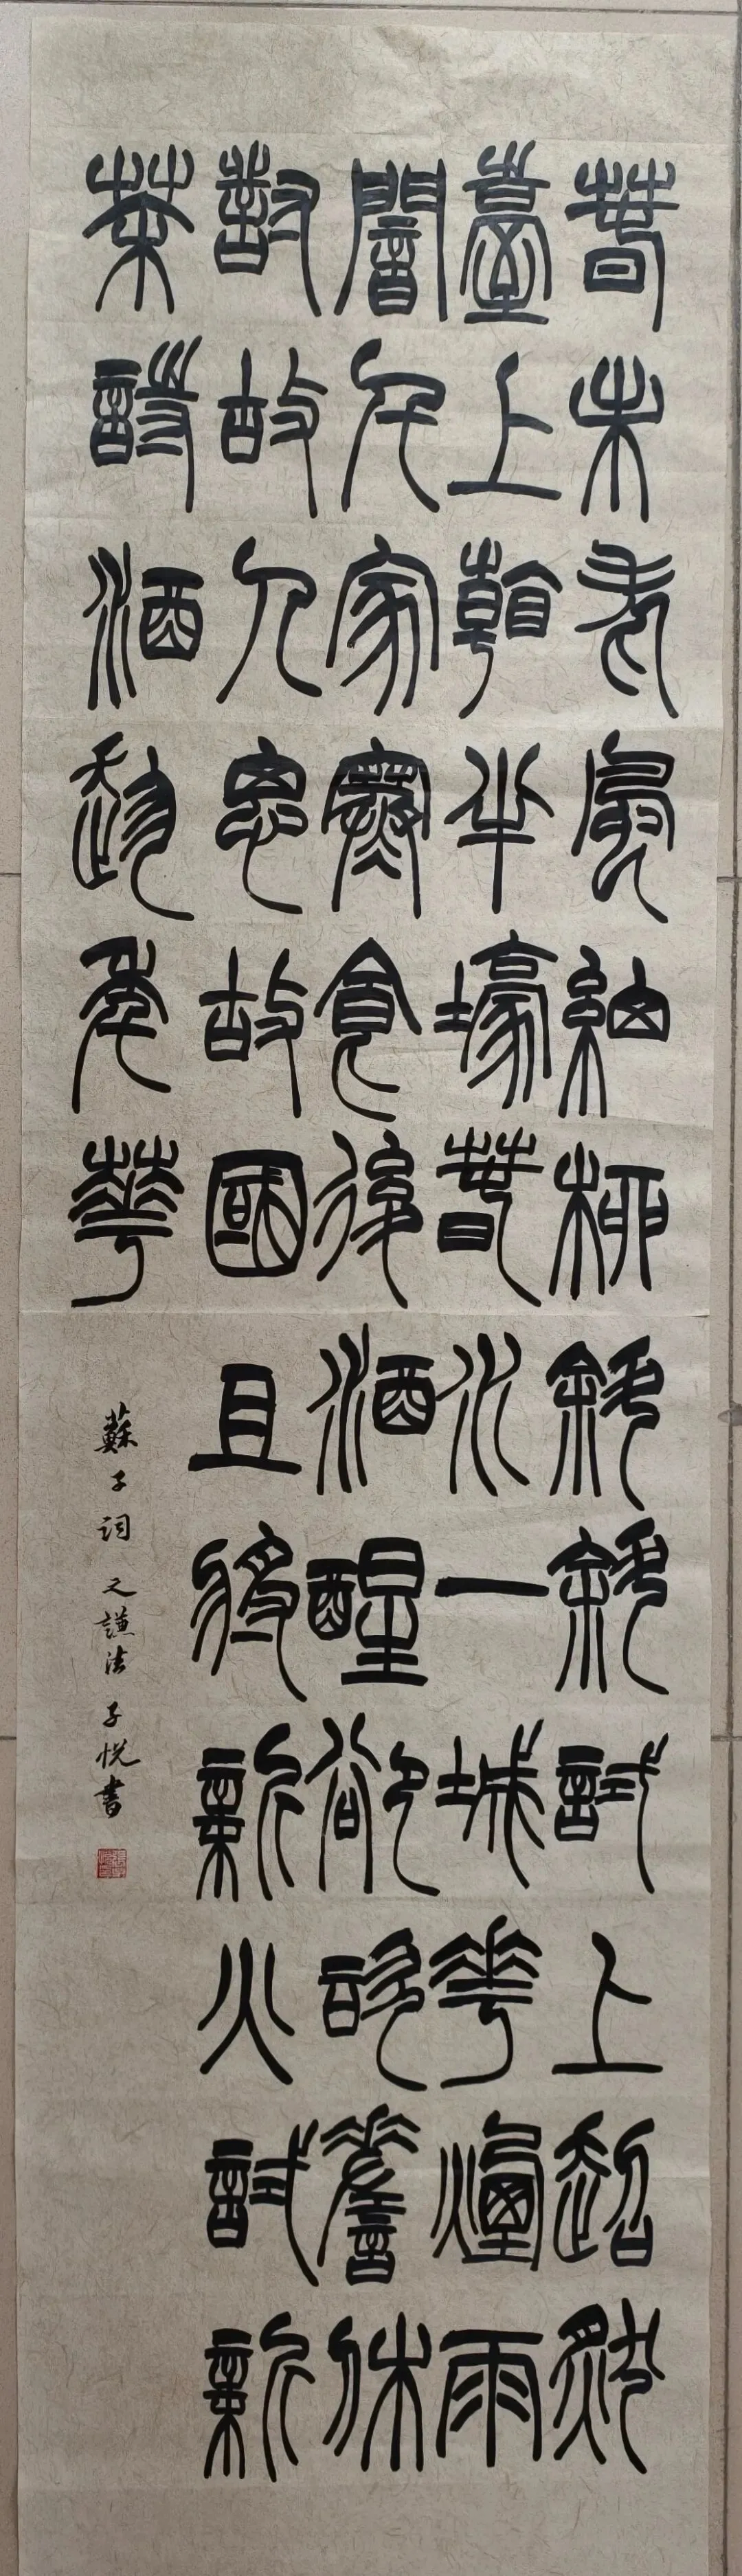 春未老風細柳斜斜試上超然
臺上看半壕春水一城花煙雨
闇千家寒食後酒醒卻諮嗟休
對故人思故國且將新火試新
茶詩酒趁年華
蘇子詞 之謙法 子悅書